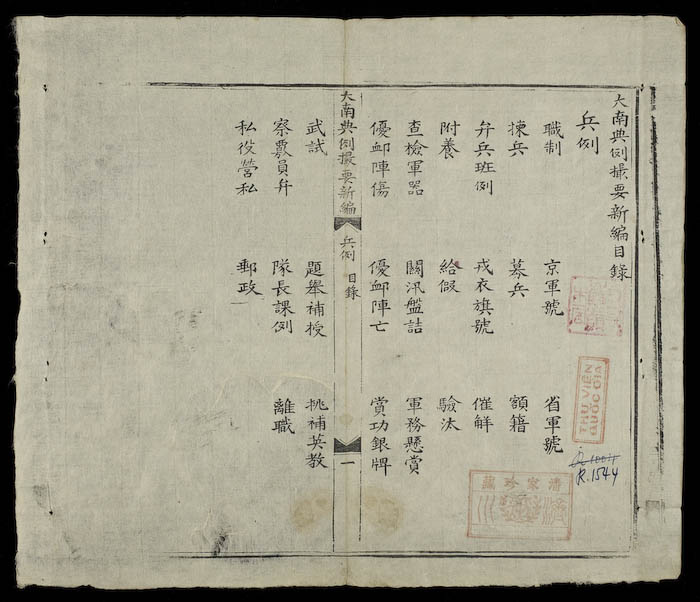 大南典例撮要新編目錄
兵例
職制 京軍號 省軍號
揀兵 募兵 額籍
弁兵班例 戎衣旗號 催解
附養 給假 驗汰
查檢軍器 關汛盤詰 軍務懸賞
優卹陣傷 優卹陣亡 賞功銀牌
大南典例撮要新編 兵例 目錄 一
武試 題舉補授 挑補英教
察覈員弁 隊長課例 離職
私役營私 郵政
THƯ VIỆN
QUỐC GIA
R.1544
家珍藏